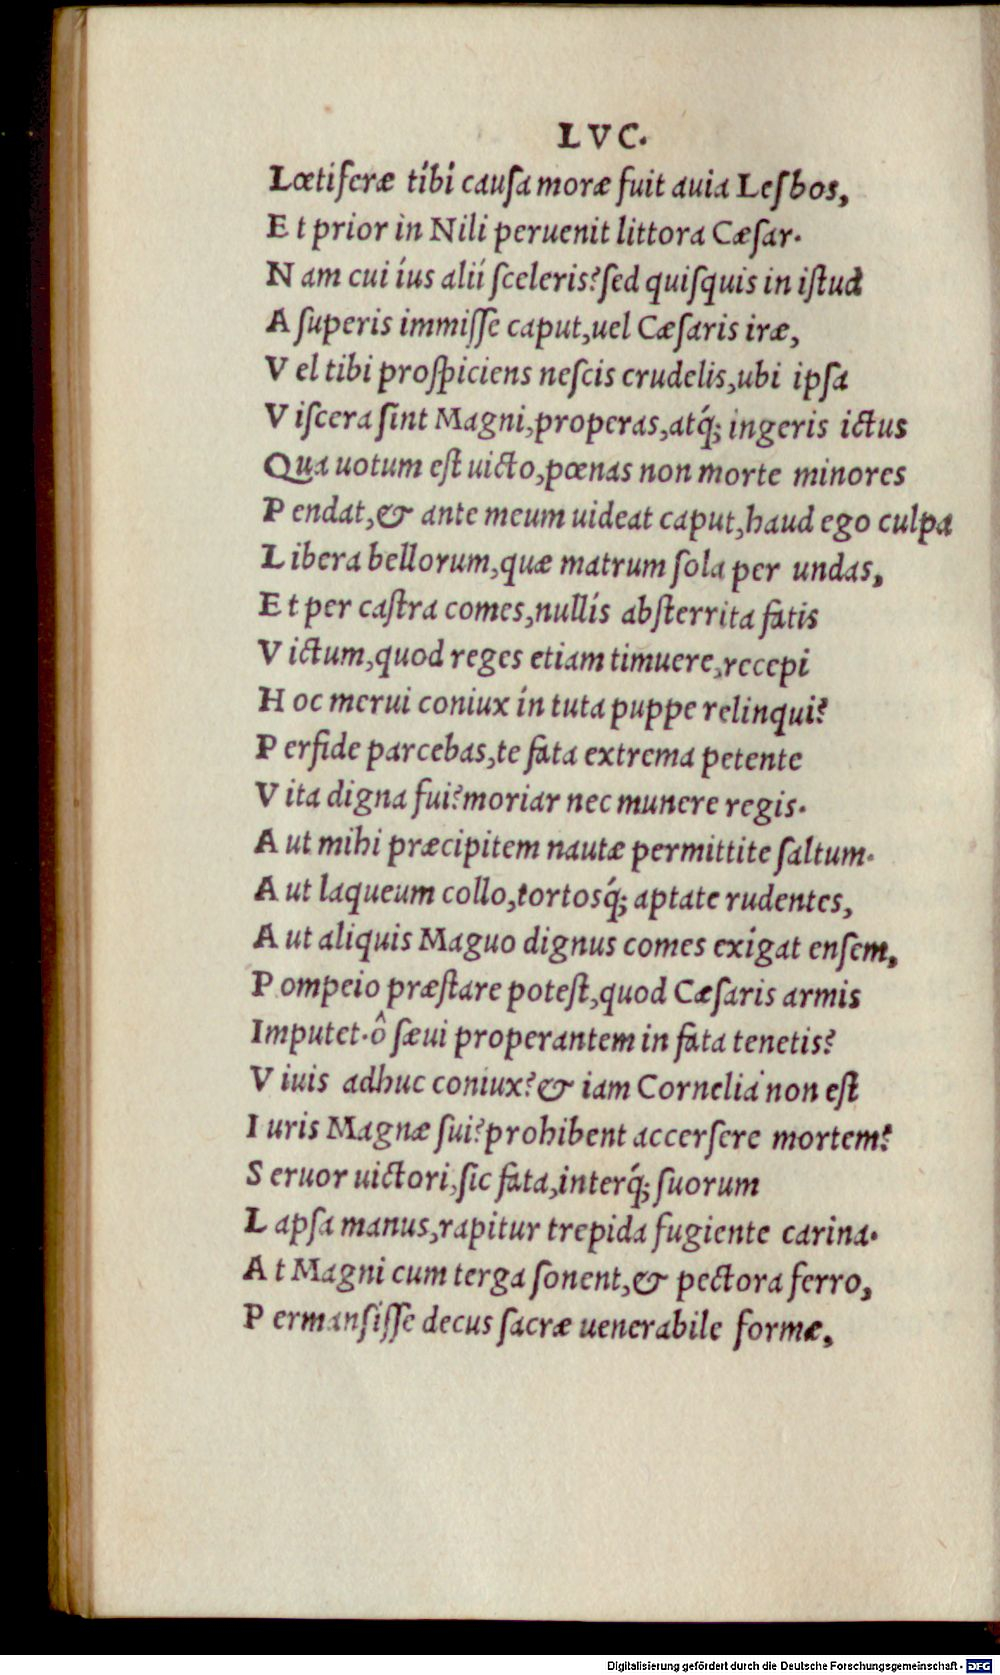 LVC.
Lœtiferæ tibi cauſa moræ fuit auia Leſbos,
E t prior in Nili peruenit littora Cæſar.
N am cui ius alii ſceleris? ſed quiſquis in iſtud
A ſuperis immiſſe caput, uel Cæſaris iræ,
V el tibi proſpiciens neſcis crudelis, ubi ipſa
V iſcera ſint Magni, properas, atq́; ingeris ictus
Qua uotum eſt uicto, pœnas non morte minores
P endat, & ante meum uideat caput, haud ego culpa
L ibera bellorum, quæ matrum ſola per undas,
E t per caſtra comes, nullis abſterrita fatis
V ictum, quod reges etiam timuere, recepi
H oc merui coniux in tuta puppe relinqui?
P erfide parcebas, te fata extrema petente
V ita digna fui? moriar nec munere regis.
A ut mihi præcipitem nautæ permittite ſaltum.
A ut laqueum collo, tortosq́; aptate rudentes,
A ut aliquis Maguo dignus comes exigat enſem,
P ompeio præſtare poteſt, quod Cæſaris armis
Imputet. ô ſæui properantem in fata tenetis?
V iuis adhuc coniux? & iam Cornelia non eſt
I uris Magnæ ſui? prohibent accerſere mortem?
S eruor uictori, ſic fata, interq́; ſuorum
L apſa manus, rapitur trepida fugiente carina.
A t Magni cum terga ſonent, & pectora ferro,
P ermanſiſſe decus ſacræ uenerabile formæ,
Digitalisierung gefördert durch die Deutsche Forschungsgemeinschaft - DFG